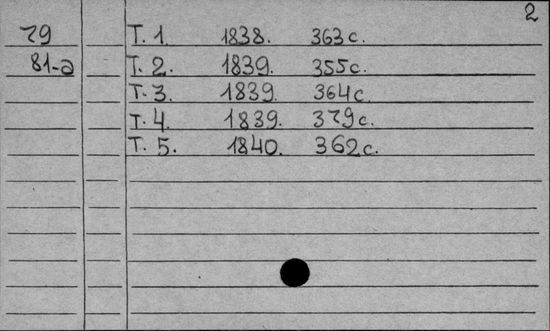 2
79 T. 1. 1838. 363 с.
81-а T. 2. 1839. 355 с.
T. 3. 1839. 364 с.
T. 4. 1839. 379 с.
T. 5. 1840. 362 с.